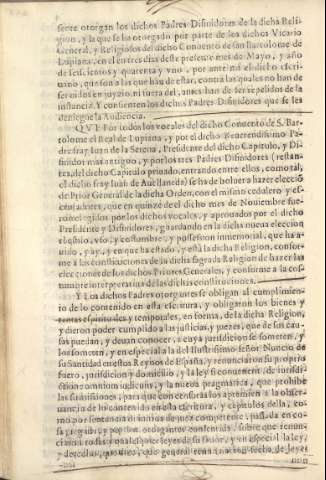 serec otorgan los dichos Padres Difinidores de la dicha Reli-
gion, y la que se ha otorgado por parte de los dichos Vicario
General, y Religiosos del dicho Conuento de san Bartolome de
Lupiana, en el en tres dias deste presente mes de Mayo, y año
de seiscientos y quarenta y vno, por ante mi el dicho escri-
uano, que son a las que han de estar, contra las quales no han de
ser oidos en juyzio, ni fuera del, antes han de ser repelidos de la
instancia. Y consienten los dichos Padres Difinidores que se les
deniegue la Audiencia.
QVE Por todos los vocales del dicho Conuento de S. Bar-
tolome el Real de Lupiana, y por el dicho Reuerendissimo Pa-
dre fray Iuan de la Serena, Presidente del dicho Capitulo, y Di-
finidor mas antiguo, y por los tres Padres Difinidores (restan-
tes) del dicho Capitulo priuado, entrando entre ellos, como tal,
el dicho fray Iuan de Auellaneda) se ha de boluer a hazer eleccio
de Prior General de la dicha Orden, con el mismo cedulero y es-
crutadores, que en quinze de el dicho mes de Nouiembre fue-
ron elegidos por los dichos vocales, y aprouados por el dicho
Presidente y Difinidores, guardando en la dicha nueua eleccion
el estilo, vso, y costumbre, y possession inmemorial, que ha a-
uido, y ay, y en que ha estado, y està la dicha Religion, confor-
me a las constituciones de la dicha sagrada Religion de hazer las
elecciones de los dichos Priores Generales, y conforme a la cos-
tumbre interpretatiua de las dichas constituciones.
Y Los dichos Padres otorgantes se obligan al cumplimien-
to de lo contenido en esta escritura, y obligaron los bienes y
rentas espirituales y temporales, en forma, de la dicha Religion,
y dieron poder cumplido a las justicias, y juezes, que de sus cau-
sas puedan, y deuan conocer, a cuya jurisdicion se someten, y
los someten, y en especial a la del Ilustrissimo señor Nuncio de
su Santidad en estos Reynos de España, y renunciaron su proprio
fuero, jurisdicion y domicilio, y la ley si conuenerit, de iurisdi-
ctione omnium iudicum, y la nueua pragmatica, que prohibe
las sumissiones, para que con censuras los apremien a la obser-
uancia de lo contenido en esta escritura, y capitulos della, co-
mo por sentencia difinitiua de juez competente, passada en co-
sa juzgada, y por los otorgantes consentida, sobre que renun-
ciaron todas y qualesquier leyes de su fauor, y en especial la ley,
y derecho, que dize, que general renunciacion fecha de leyes
non